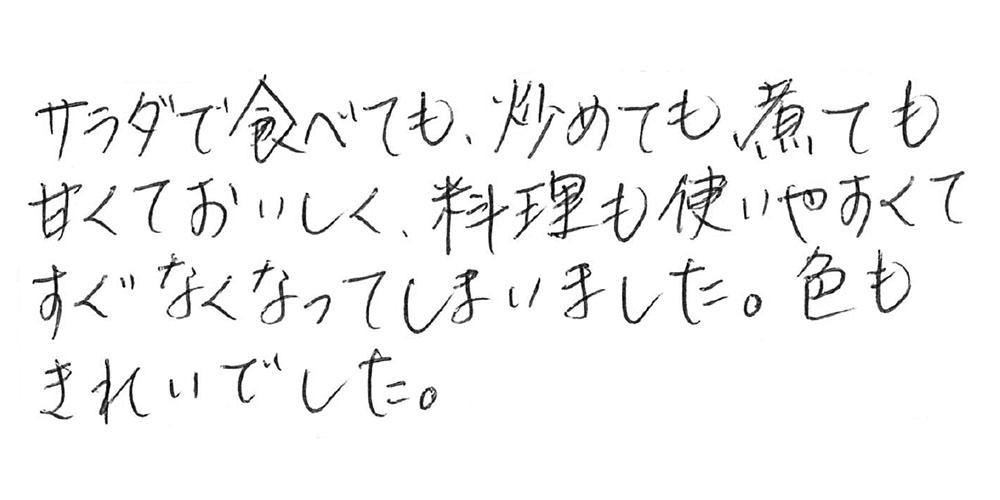 サラダで食べても、炒めても、煮ても
甘くておいしく、料理も使いやすくて
すぐなくなってしまいました。色も
きれいでした。